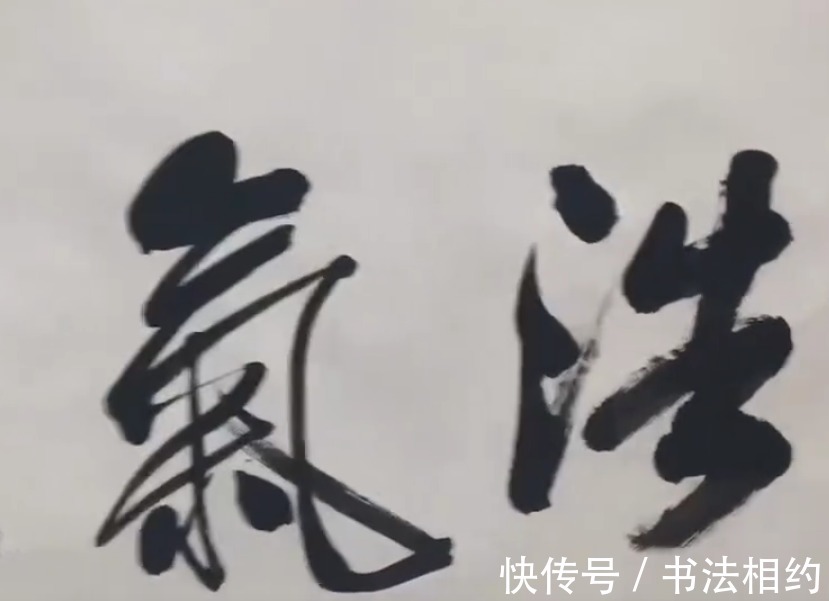 浩氣
快传号/书法相约